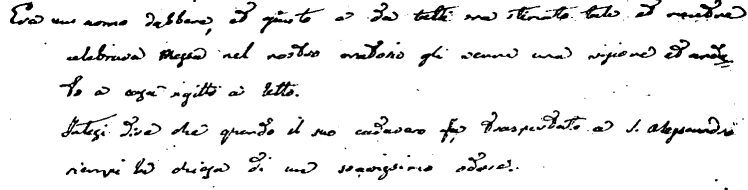 Era un uomo dabbene, et giusto e da tutti era stimato tale et mentre
celebrava messa nel nostro oratorio gli venne una visione et anda-
to a casa si gittò à letto.
Intesi dire che quando il suo cadavero fu trasportato a S. Alessandro
riempì la chiesa di un soavissimo odore.